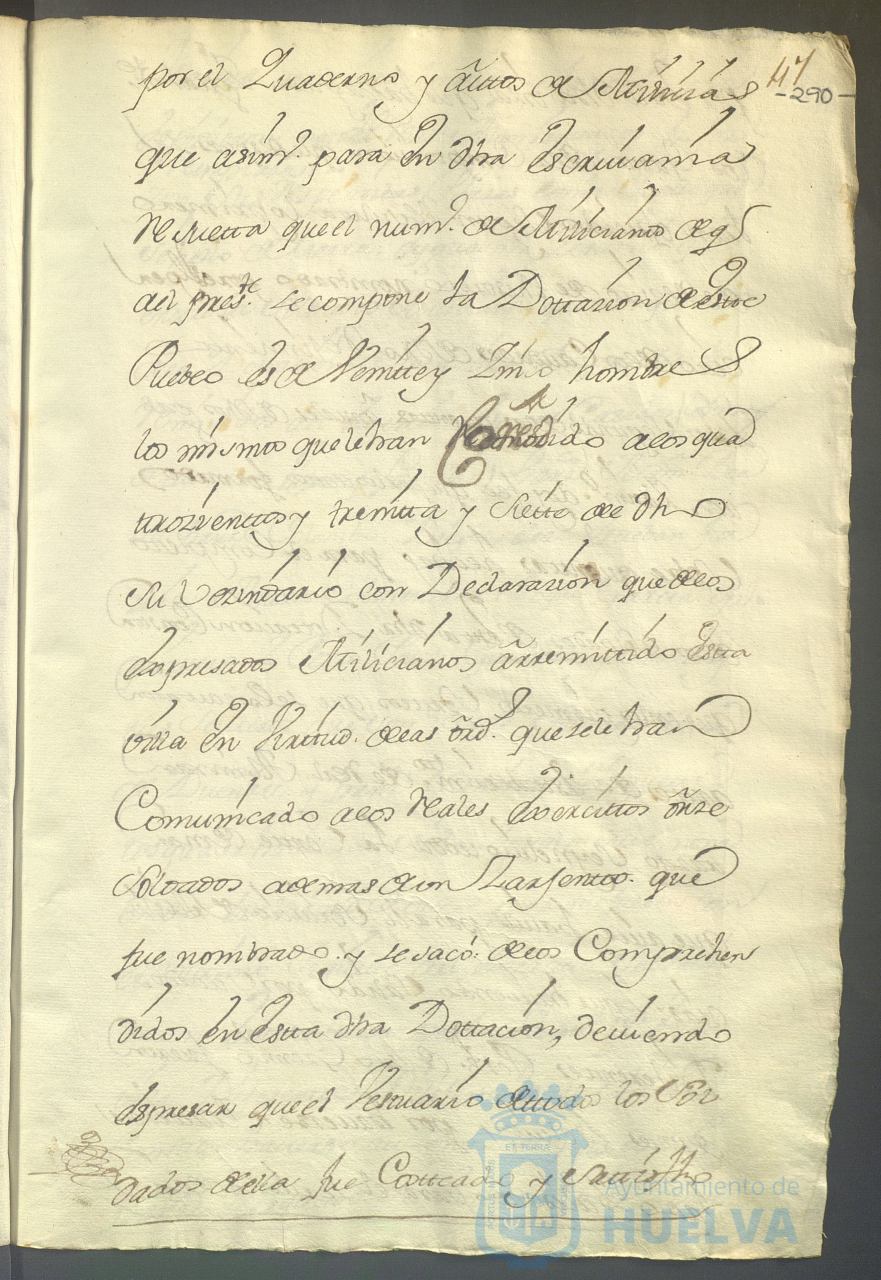 47
-290-
por el Quaderno y autos de Milicias
que asim.º para en dha Escrivania
resulta que el num.º de Milicianos de q.
al pres.te se compone la Dottazion de este
Pueblo es de Veintte y Zinco hombres
los mismos que le han rrespondido a los qua
trozienttos y treintta y siette de dho
su Vezindario con Declarazion que de los
Expresados Milicianos à rremittido esta
villa en Virttud. de las ord.s que se le han
Comunicado a los Reales Exercittos onze
Soldados ademas de un Zarjentto. que
fue nombrado. y se sacó. de los Comprehen
didos en Esta dha Dottacion, deviendo
Expresar que el Vestuario de ttodos los Sol
dados de ella fue Costeado y
Ayuntamiento de
HUELVA